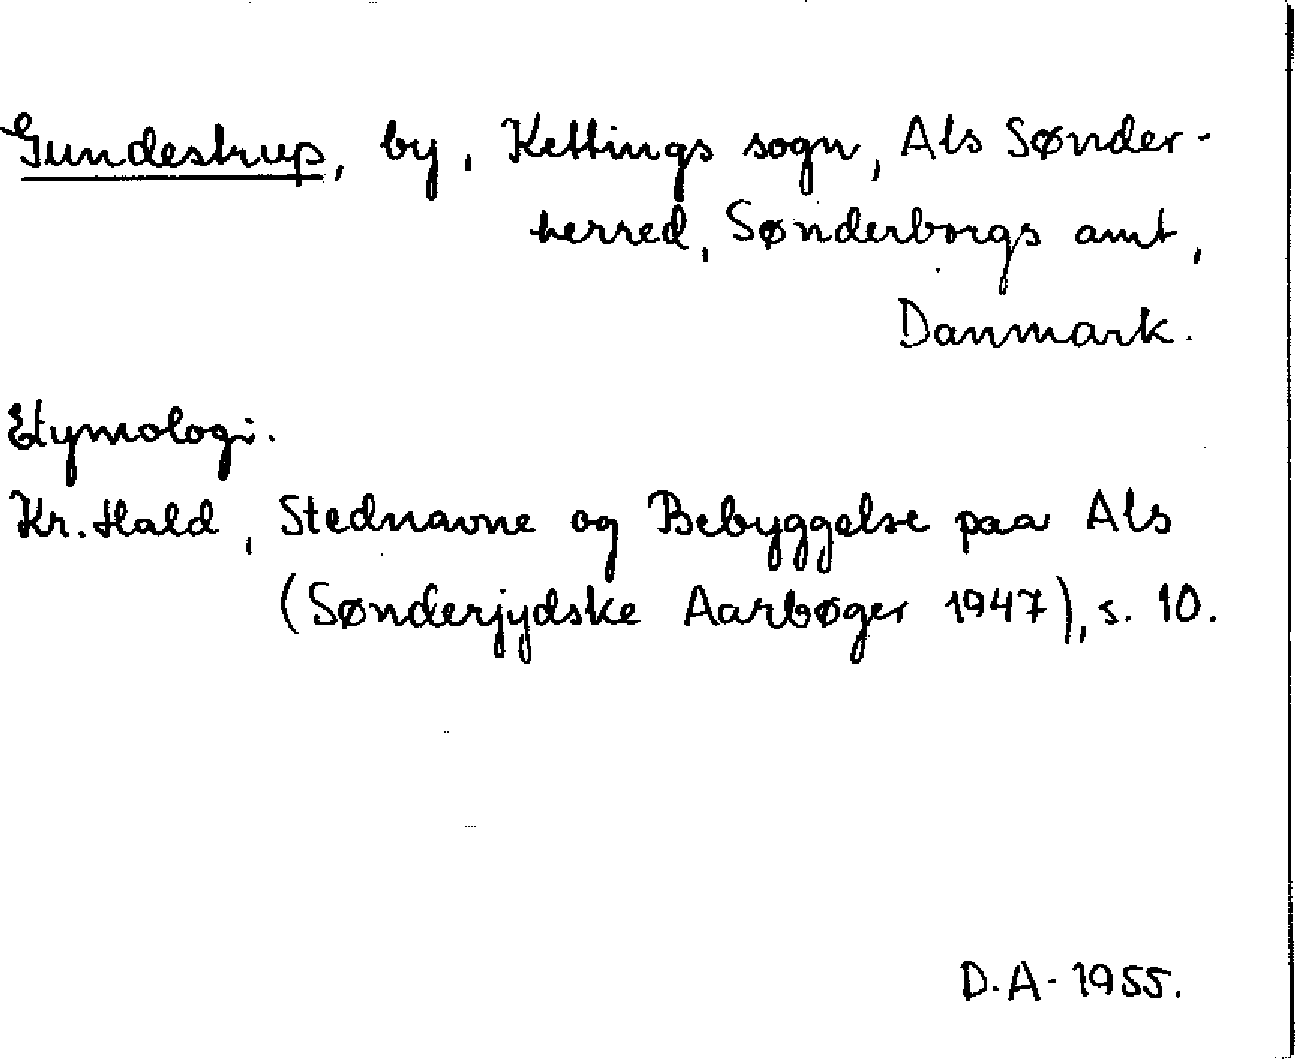 Gundestrup, by, Kettings sogn, Als Sønder-
herred, Sønderborgs amt,
Danmark.
Etymologi.
Kr. Hald, Stednavne og Bebyggelse paa Als
(Sønderjydske Aarbøger 1947), s. 10.
D.A. 1955.